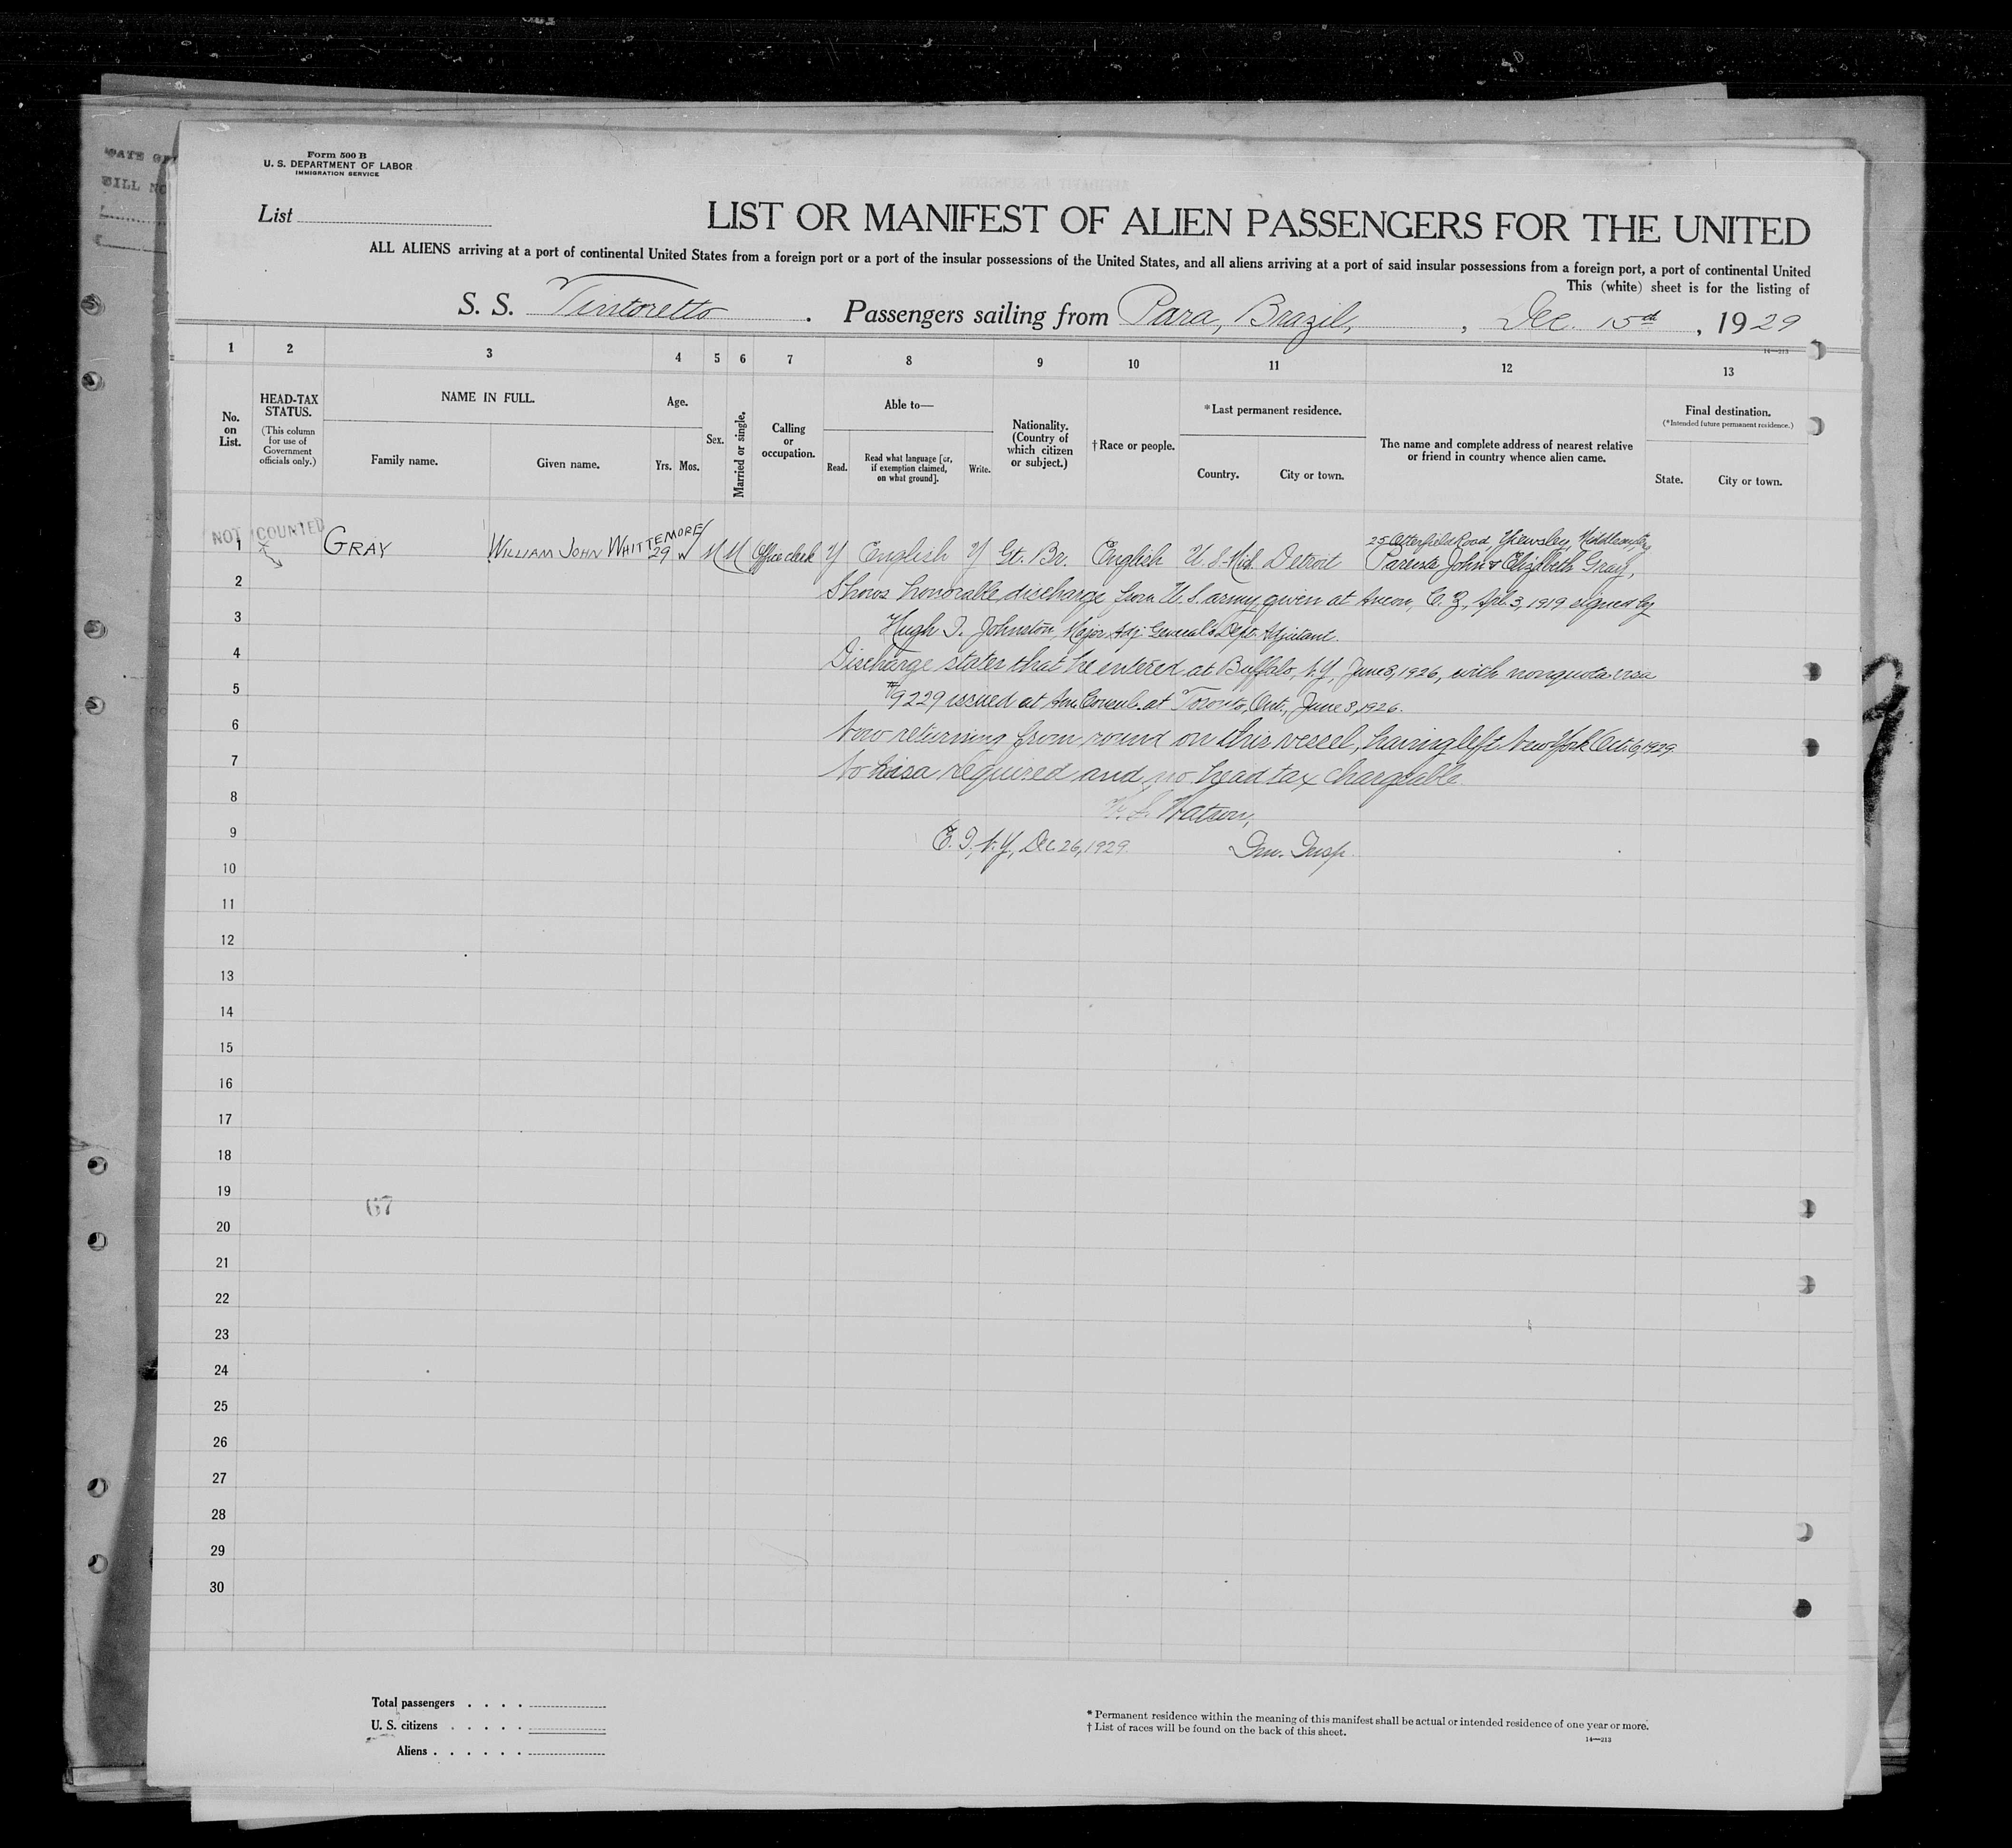 Form 500 B
U. S. DEPARTMENT OF LABOR
IMMIGRATION SERVICE
List
LIST OR MANIFEST OF ALIEN PASSENGERS FOR THE UNITED
ALL ALIENS arriving at a port of continental United States from a foreign port or a port of the insular possessions of the United States, and all aliens arriving at a port of said insular possessions from a foreign port, a port of continental United
This (white) sheet is for the listing of
S. S. Tintoretto . Passengers sailing from Para, Brazil, , Dec. 15th , 1929
14—213
1 2 3 4 5 6 7 8 9 10 11 12 13
No. on List.
HEAD-TAX STATUS.
(This column for use of Government officials only.)
NAME IN FULL.
Family name. Given name.
Age.
Yrs. Mos.
Sex.
Married or single.
Calling or occupation.
Able to—
Read. Read what language [or, if exemption claimed, on what ground]. Write.
Nationality. (Country of which citizen or subject.)
† Race or people.
*Last permanent residence.
Country. City or town.
The name and complete address of nearest relative or friend in country whence alien came.
Final destination.
(*Intended future permanent residence.)
State. City or town.
NOT COUNTED
25 Otterfield Road, Yiewsley, Middlesex
1 GRAY WILLIAM JOHN WHITTEMORE 29 M M Office clerk Y English Y Gt. Br. English U.S. Mich. Detroit Parents John & Elizabeth Gray,
2 Shows honorable discharge from U.S. army, given at Ancon, C. Z., Apl. 3, 1919 signed by
3 Hugh I. Johnston, Major, Adj. General's Dept. Adjutant.
4 Discharge states that he entered at Buffalo, N.Y., June 8, 1926, with nonquota visa
5 #9229 issued at Am. Consul. at Toronto, Ont., June 3, 1926.
6 Now returning from round on this vessel, having left New York Oct. 6, 1929
7 No visa required and no head tax chargeable.
8 Watson,
9 E. I., N.Y., Dec. 26, 1929. Imm. Insp.
10
11
12
13
14
15
16
17
18
19
67
20
21
22
23
24
25
26
27
28
29
30
Total passengers . . . .
U. S. citizens . . . . .
Aliens . . . . . .
* Permanent residence within the meaning of this manifest shall be actual or intended residence of one year or more.
† List of races will be found on the back of this sheet.
14—213